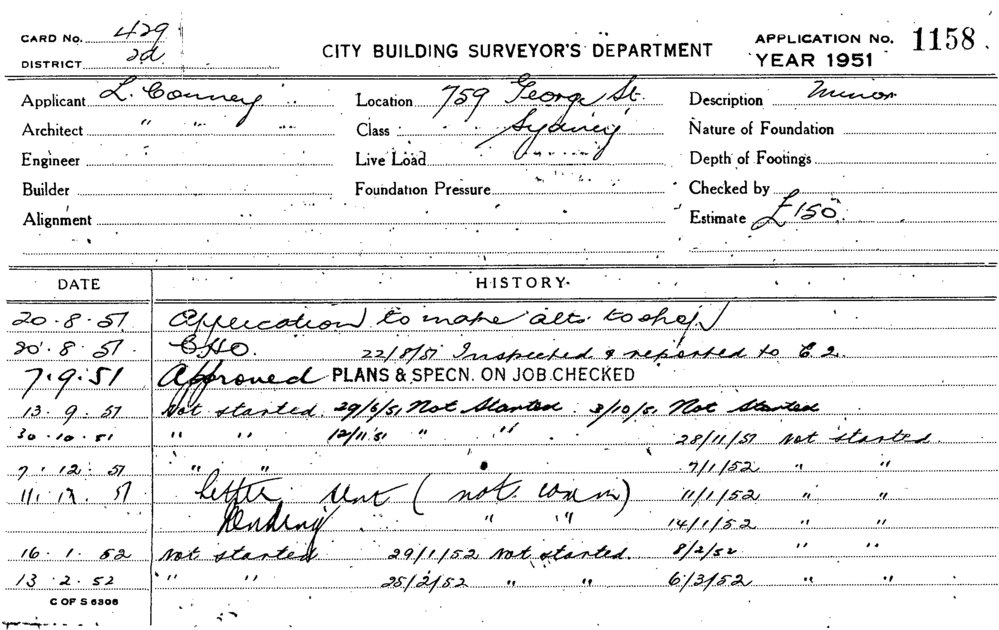 CARD No. 429
DISTRICT 2d
CITY BUILDING SURVEYOR'S DEPARTMENT
APPLICATION No. 1158.
YEAR 1951
Applicant L. Conney
Location 759 George St.
Description Minor
Architect " " "
Class Sydney
Nature of Foundation
Engineer
Live Load
Depth of Footings
Builder
Foundation Pressure
Checked by
Alignment
Estimate £150.
DATE HISTORY.
20.8.51 Application to make alts to shop
20.8.51 CHO. 22/8/51 Inspected & reported to C.2.
7.9.51 Approved PLANS & SPECN. ON JOB CHECKED
13.9.51 Not started. 29/6/51 Not Started. 3/10/51 Not Started
30.10.51 " " 12/11/51 " " 28/11/51 Not started.
7.12.51 " " 7/1/52 " "
11.12.51 Letter sent ( not ) 11/1/52 " "
Pending " " 14/1/52 " "
16.1.52 Not started 29/1/52 Not started. 8/2/52 " "
13.2.52 " " 25/2/52 " " 6/3/52 " "
C OF S 6306